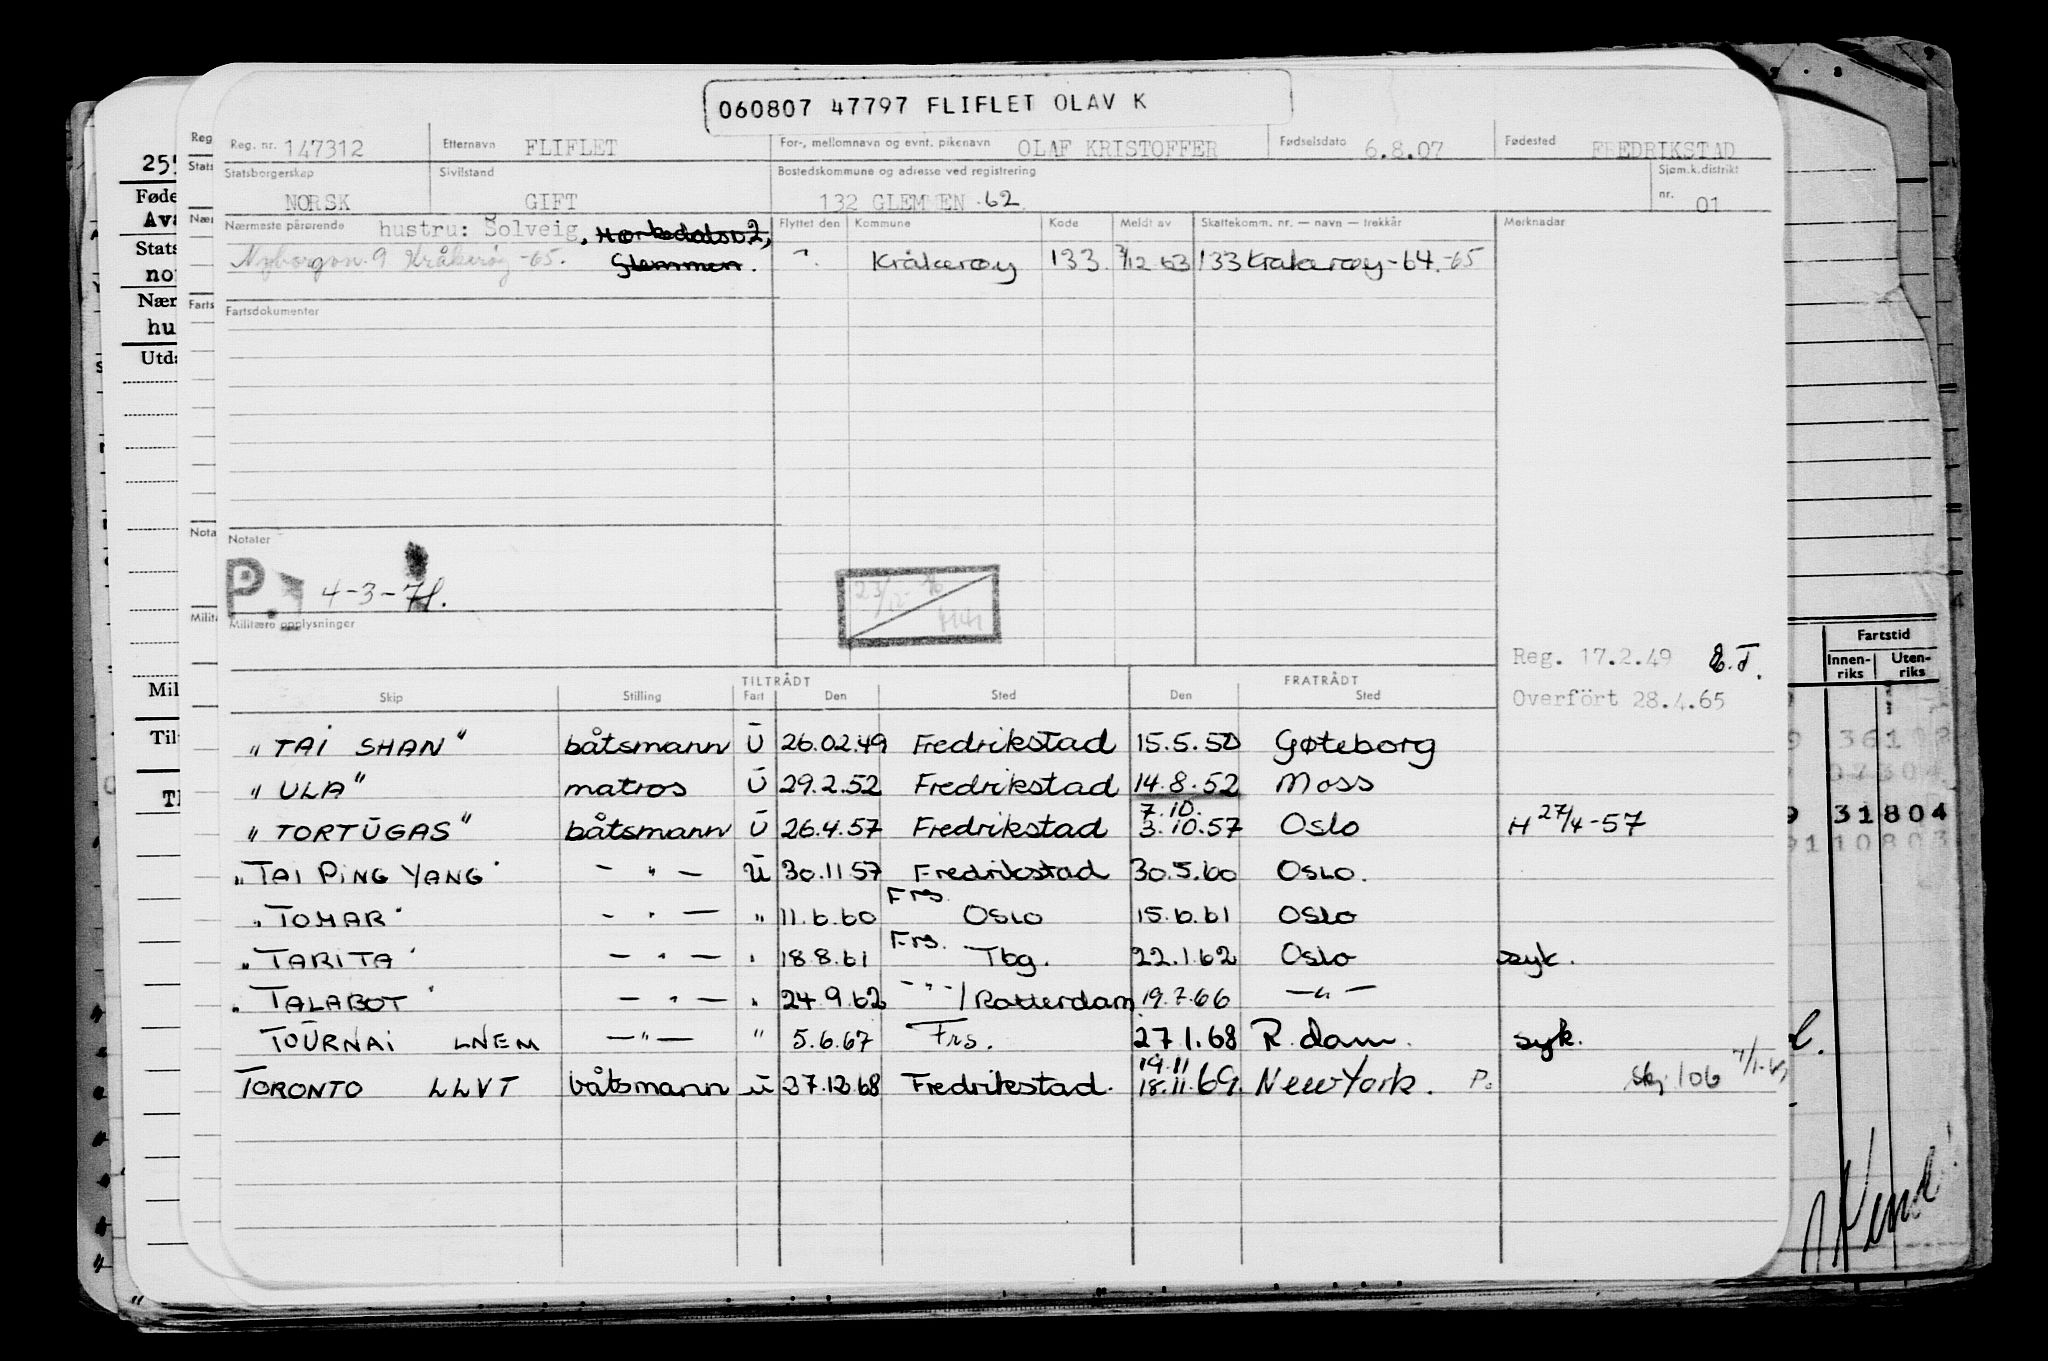 060807 47797 FLIFLET OLAV K
Reg. nr. 147312 Etternavn FLIFLET For-, mellomnavn og evnt. pikenavn OLAF KRISTOFFER Fødselsdato 6.8.07 Fødested FREDRIKSTAD
Statsborgerskap NORSK Sivilstand GIFT Bostedskommune og adresse ved registrering 132 GLEMMEN 62 Sjøm.k.distrikt nr. 01
Nærmeste pårørende hustru: Solveig, Flyttet den Kommune Kode Meldt av Skattekomm. nr. — navn — trekkår Merknader
9 Kråkerøy -65. Glemmen. Kråkerøy 133. 133 Kråkerøy -64.-65
Fartsdokumenter
Notater
P. 4-3-71.
Militære opplysninger
Reg. 17.2.49 E.T.
Overført 28.4.65
TILTRÅDT FRATRÅDT
Skip Stilling Fart Den Sted Den Sted
"TAI SHAN" båtsmann U 26.02.49 Fredrikstad 15.5.50 Gøteborg
"ULA" matros U 29.2.52 Fredrikstad 14.8.52 Moss
7.10.
"TORTUGAS" båtsmann U 26.4.57 Fredrikstad 3.10.57 Oslo H 27/4-57
"TAI PING YANG" — " — U 30.11 57 Fredrikstad 30.5.60 Oslo.
"TOMAR" — " — " 11.6.60 Frs. Oslo 15.6.61 Oslo
"TARITA" — " — " 18 8.61 Frs. Tbg. 22.1.62 Oslo syk.
"TALABOT" — " — " 24.9.62 — " — / Rotterdam 19.7.66 — " —
TOURNAI LNEM — " — " 5.6.67 Frs. 27 1.68 R.dam. syk.
19.11
TORONTO LLVT båtsmann U 27.12.68 Fredrikstad. 18.11.69. New York. P. Skj 106
Reg
Stats
Nær
Farts
Nota
Milit
255
Føde
Ava
Stats
no
Nær
hu
Utda
Mil
Til
Fartstid
Innen-riks Uten-riks
31804